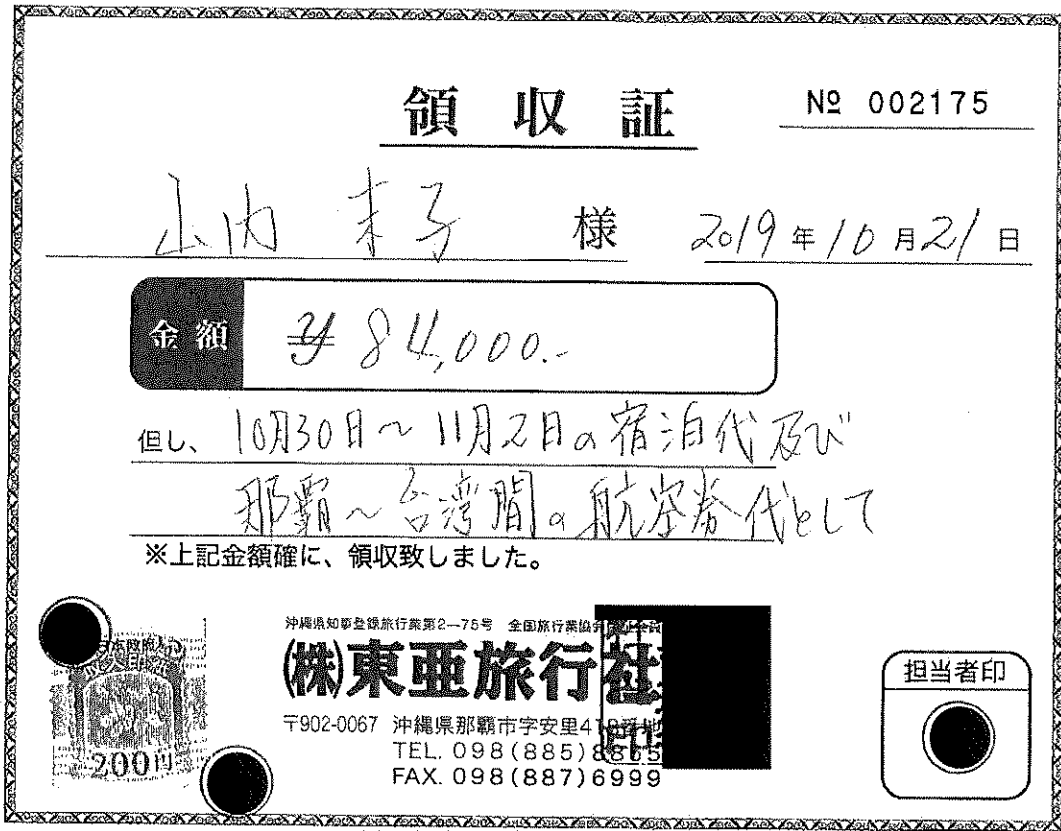 領収証
№ 002175
山内 末子 様
2019年10月21日
金額 ¥84,000.-
但し、10月30日~11月2日の宿泊代及び
那覇~台湾間の航空券代として
※上記金額確に、領収致しました。
沖縄県知事登録旅行業第2―75号 全国旅行業協会
㈱東亜旅行社
〒902-0067 沖縄県那覇市字安里41
TEL. 098(885)8
FAX. 098(887)6999
200円
担当者印